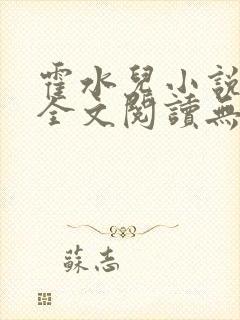 霍水兒小說
全文閱讀無
蘇志